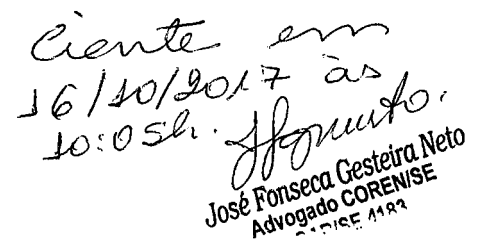 Ciente em
16/10/2017 às
10:05h.
José Fonseca Gesteira Neto
Advogado COREN/SE
OAB/SE 4183